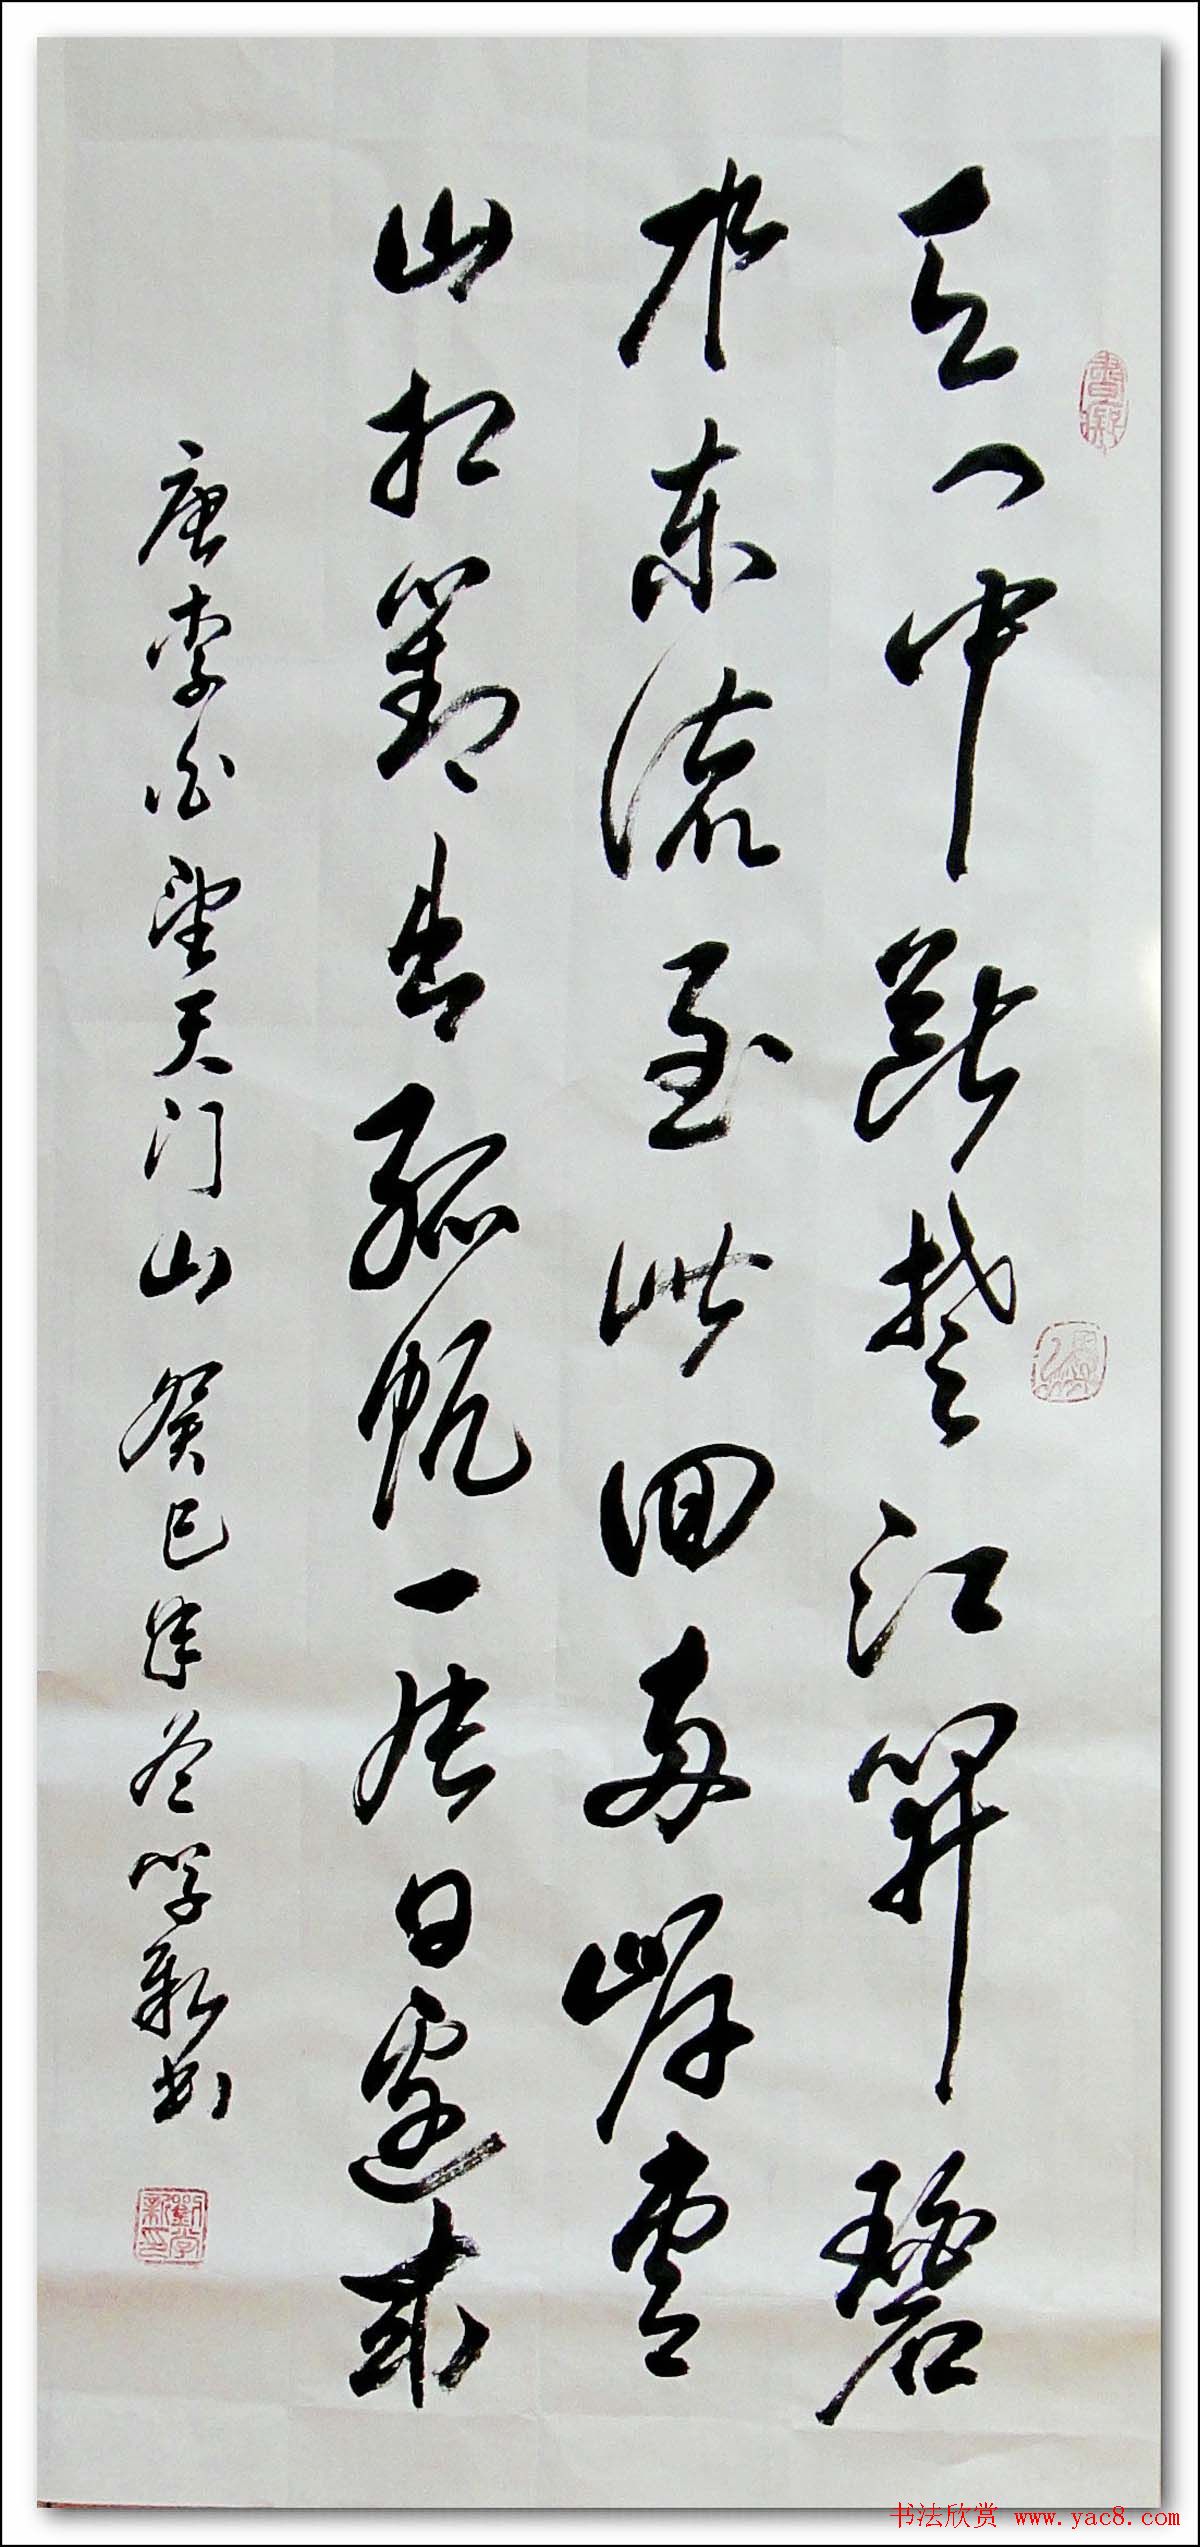 天门中斷楚江開碧
水东流至此回两岸青
山相對出孤帆一片日邊来
唐李白望天门山 癸巳年冬学新书
劉學新印
书法欣赏 www.yac8.com